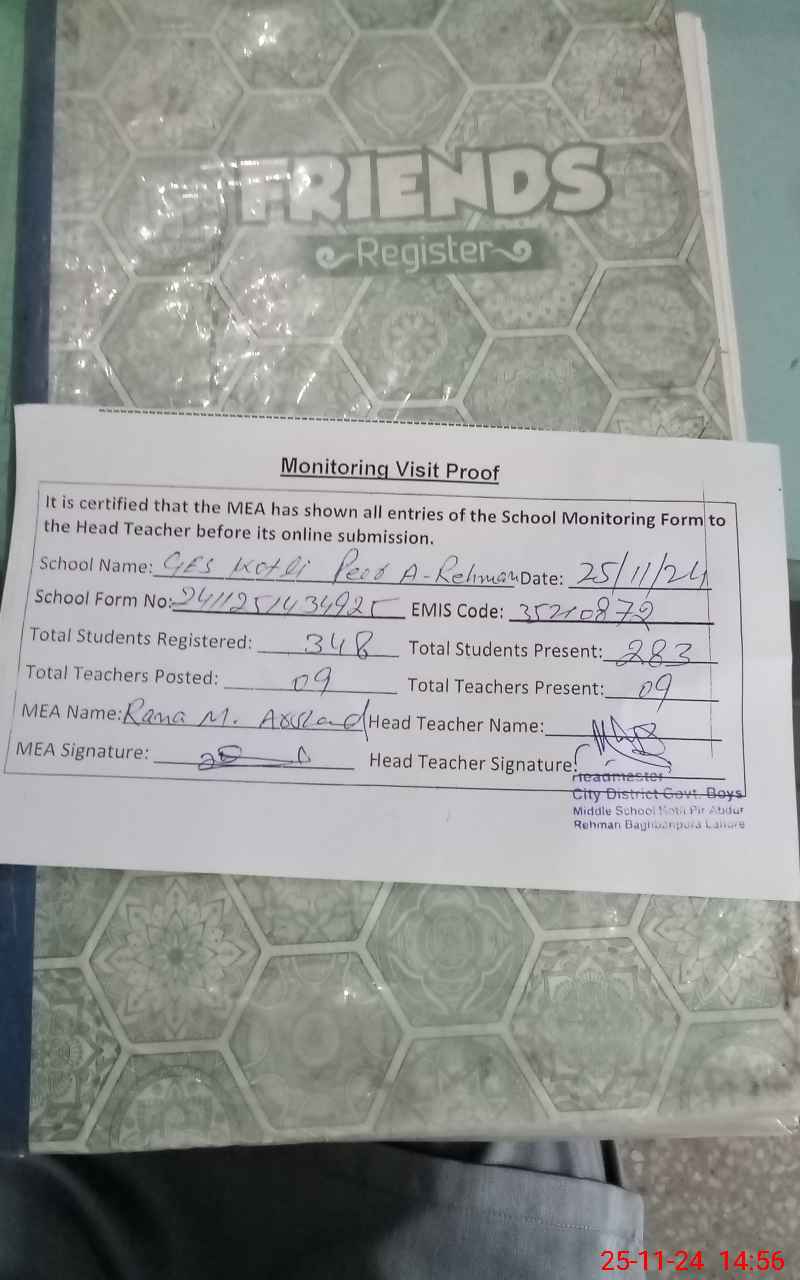 FRIENDS
Register
Monitoring Visit Proof
It is certified that the MEA has shown all entries of the School Monitoring Form to
the Head Teacher before its online submission.
School Name: GES Kotli Peer A-Rehman Date: 25/11/24
School Form No: 2411251434925 EMIS Code: 35210872
Total Students Registered: 348 Total Students Present: 283
Total Teachers Posted: 09 Total Teachers Present: 09
MEA Name: Rana M. Arshad Head Teacher Name:
MEA Signature: Head Teacher Signature:
Headmaster
City District Govt. Boys
Middle School Kotli Pir Abdur
Rehman Baghbanpura Lahore
25-11-24 14:56